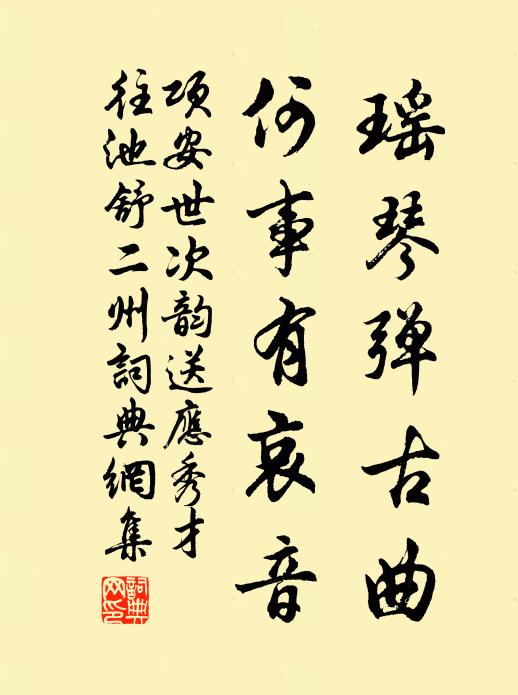 瑶琴弹古曲
何事有哀音
项安世次韵送應秀才
往池舒二州詞典網集